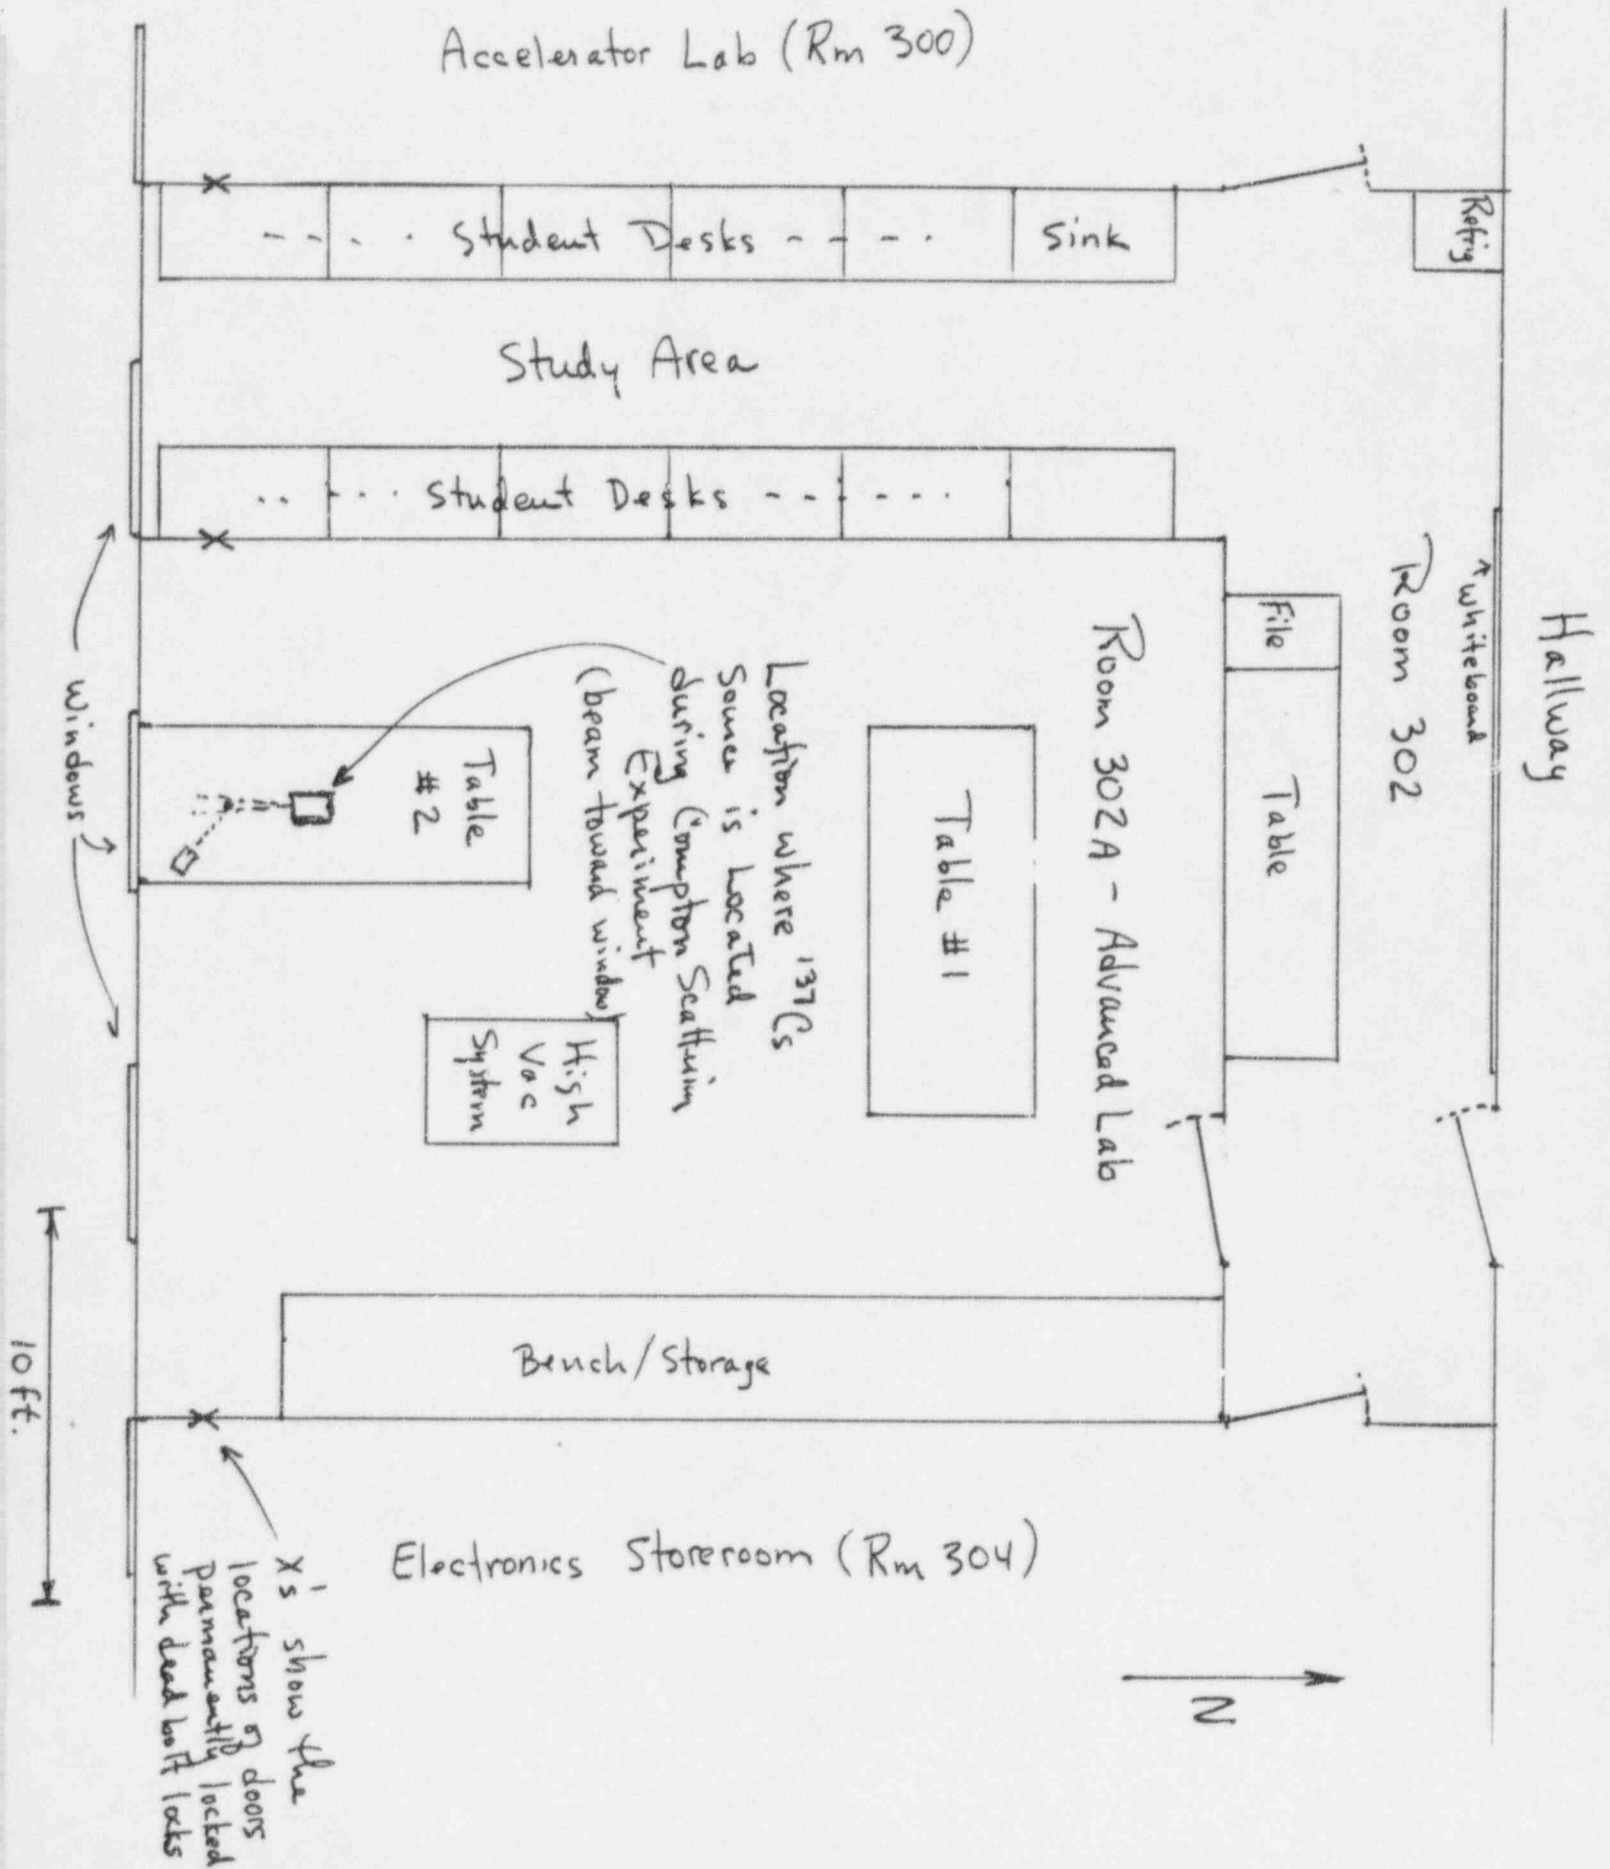 Accelerator Lab (Rm 300)
Refrig
---- Student Desks ----
Sink
Study Area
----- Student Desks ------
Hallway
whiteboard
Room 302
File
Table
Room 302A - Advanced Lab
Table #1
Location where ¹³⁷Cs
Source is Located
during Compton Scattering
Experiment
(beam toward window)
Table
#2
Windows
High
Vac
System
Bench/Storage
10 ft.
Electronics Storeroom (Rm 304)
X's show the
locations of doors
permanently locked
with dead bolt locks
N